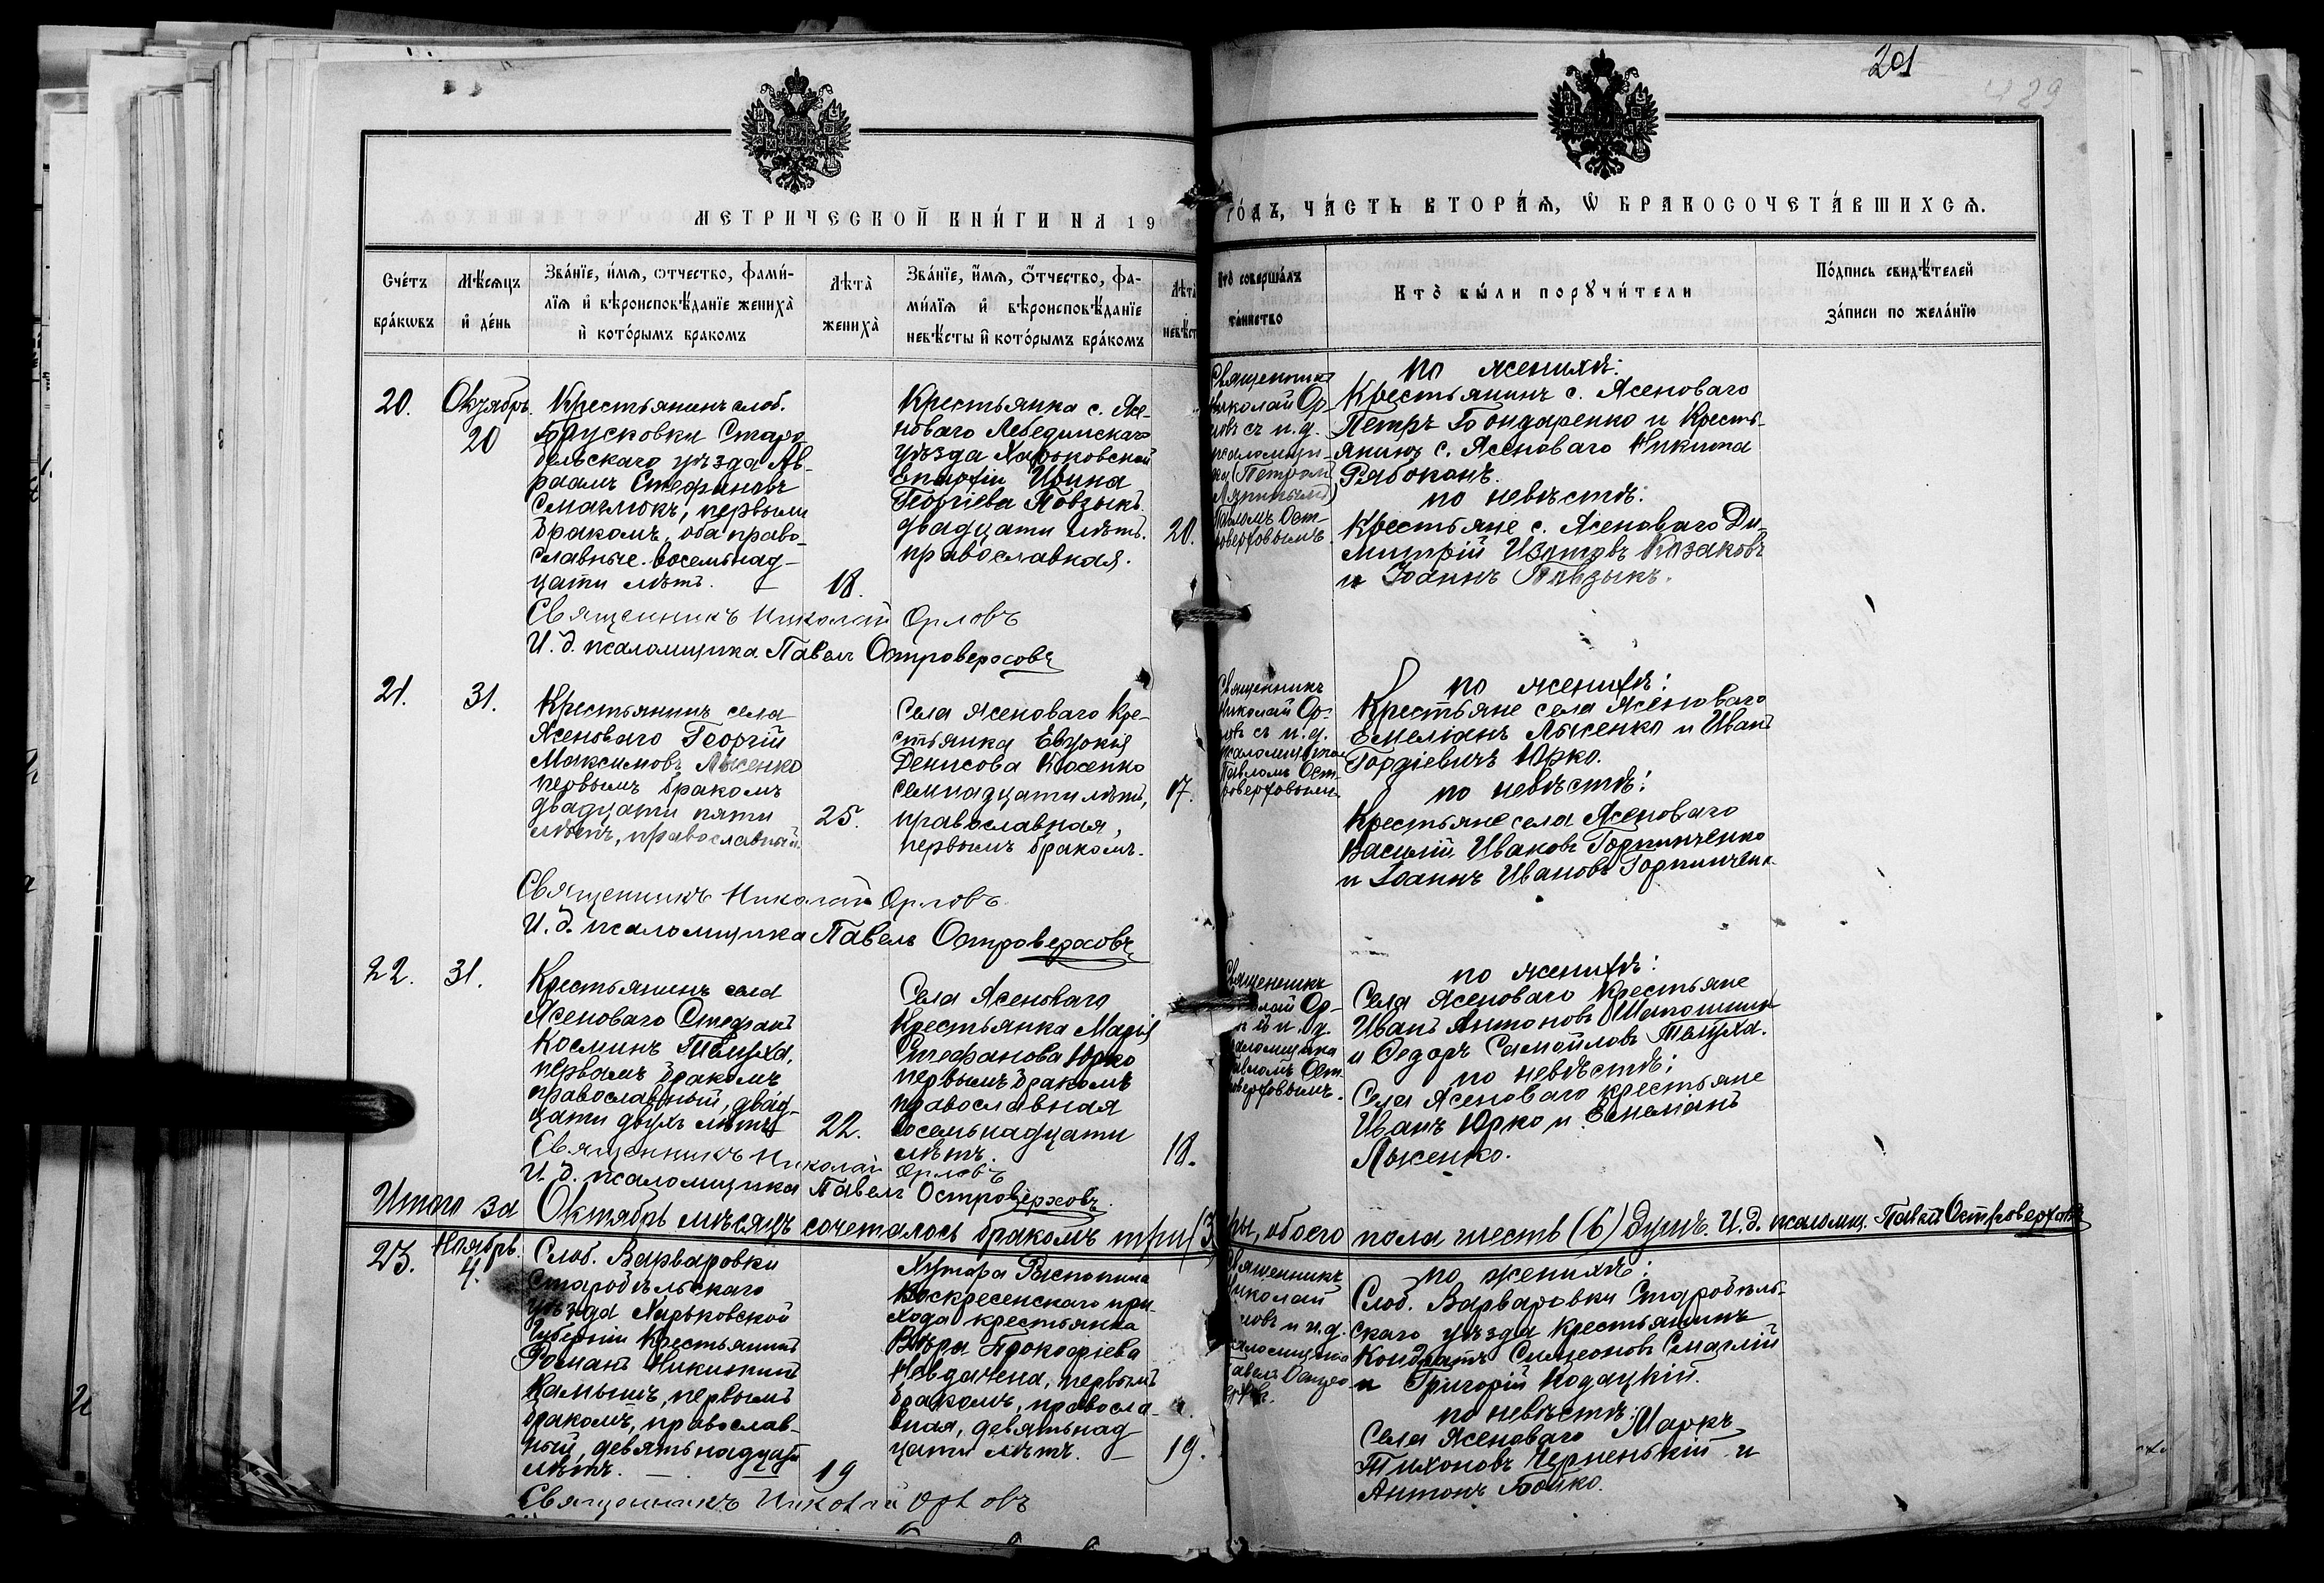 201
489
МЕТРИЧЕСКОЙ КНИ́ГИ НА 19
го́дъ, ча́сть втора́ѧ, ѡ҆ бракосочета́вшихсѧ.
Сче́тъ бра́кѡвъ
Мѣ́сѧцъ и҆ де́нь
Зва́нїе, и҆́мѧ, ѻ҆́тчество, фами́-
лїѧ и҆ вѣроисповѣ́данїе жениха̀
и҆ кото́рымъ бракомъ
Лѣта̀ жениха̀
Зва́нїе, и҆́мѧ, ѻ҆́тчество, фа-
ми́лїѧ и҆ вѣроисповѣ́данїе
невѣ́сты и҆ кото́рымъ бра́комъ
Лѣта̀
невѣ́ст
Кто̀ соверша́лъ
та́инство
Кто̀ бы́ли порꙋчи́тели
По́дпись свидѣ́телей
за́писи по жела́нїю
20.
Октябрь.
20
Крестьянинъ слоб.
Старо-
бельскаго уѣзда Ав-
раамъ Стефановъ
Смаглюкъ, первымъ
бракомъ, оба право-
славные. восемьнад-
цати лѣтъ.
18.
Крестьянка с. Ясе-
новаго Лебединскаго
уѣзда Харьковской
Епархіи Ирина
Георгіева Повзыкъ
двадцати лѣтъ.
православная.
20.
Священникъ
Николай Ор-
ловъ съ и.д.
псаломщи-
ка
Павломъ Ост-
роверховымъ.
по женихѣ:
Крестьянинъ с. Ясеноваго
Петръ Бондаренко и Кресть-
янинъ с. Ясеноваго Никита
Рябоконъ.
по невѣстѣ:
Крестьяне с. Ясеноваго Ди-
митрій Козаковъ
и Іоаннъ Повзыкъ.
Священникъ Николай Орловъ
И. д. псаломщика Павелъ Островерховъ
21.
31.
Крестьянинъ села
Ясеноваго Георгій
Максимовъ Лысенко
первымъ бракомъ
двадцати пяти
лѣтъ, православный.
25.
Села Ясеноваго Кре-
стьянка Евдокія
Денисова Косенко
семнадцати лѣтъ,
православная,
первымъ бракомъ.
17.
Священникъ
Николай Ор-
ловъ съ и.д.
псаломщика
Павломъ Ост-
роверховымъ
по женихѣ:
Крестьяне села Ясеноваго
Емеліанъ Лысенко и Иванъ
Гордіевичъ Юрко.
по невѣстѣ:
Крестьяне села Ясеноваго
Василій Ивановъ Горпинченко
и Іоаннъ Ивановъ Горпинченк
Священникъ Николай Орловъ
И. д. псаломщика Павелъ Островерховъ
22.
31.
Крестьянинъ села
Ясеноваго Стефанъ
Косминъ
первымъ бракомъ
православный, двад-
цати двухъ лѣтъ
22.
Села Ясеноваго
Крестьянка Марія
Стефанова Юрко
первымъ бракомъ
православная
восемьнадцати
лѣтъ.
18.
Священникъ
Николай Ор-
и. д.
псаломщика
Павломъ Ост
роверховымъ.
по женихѣ:
Села Ясеноваго Крестьяне
Иванъ Антоновъ
и Ѳедоръ Самойловъ
по невѣстѣ:
Села Ясеноваго крестьяне
Иванъ Юрко и Емеліанъ
Лысенко.
Священникъ Николай Орловъ
И. д. псаломщика Павелъ Островерховъ.
Итого за Октябрь мѣсяцъ сочеталось бракомъ три (3 ры, обоего пола шесть (6) душъ. И. д. псаломщ. Павелъ Островерховъ
23.
Ноябрь.
4.
Слоб. Варваровки
Старобѣльскаго
уѣзда Харьковской
Губерніи Крестьянинъ
Романъ Никитинъ
Камышъ, первымъ
бракомъ, православ-
ный, девятьнадцати
лѣтъ.
19
Хутора
Воскресенскаго при-
хода крестьянка
Вѣра Прокофіева
первымъ
бракомъ, правосла-
вная, девятьнад
цати лѣтъ.
19.
Священникъ
Николай
ловъ и и.д.
псаломщика
Павелъ
по женихѣ:
Слоб. Варваровки Старобѣль-
скаго уѣзда крестьянинъ
Кондратъ Симеоновъ Смаглій
и Григорій Кодацкій.
по невѣстѣ:
Села Ясеноваго Маркъ
Тихоновъ Черненькій и
Антонъ Бойко.
Священникъ Николай Орловъ